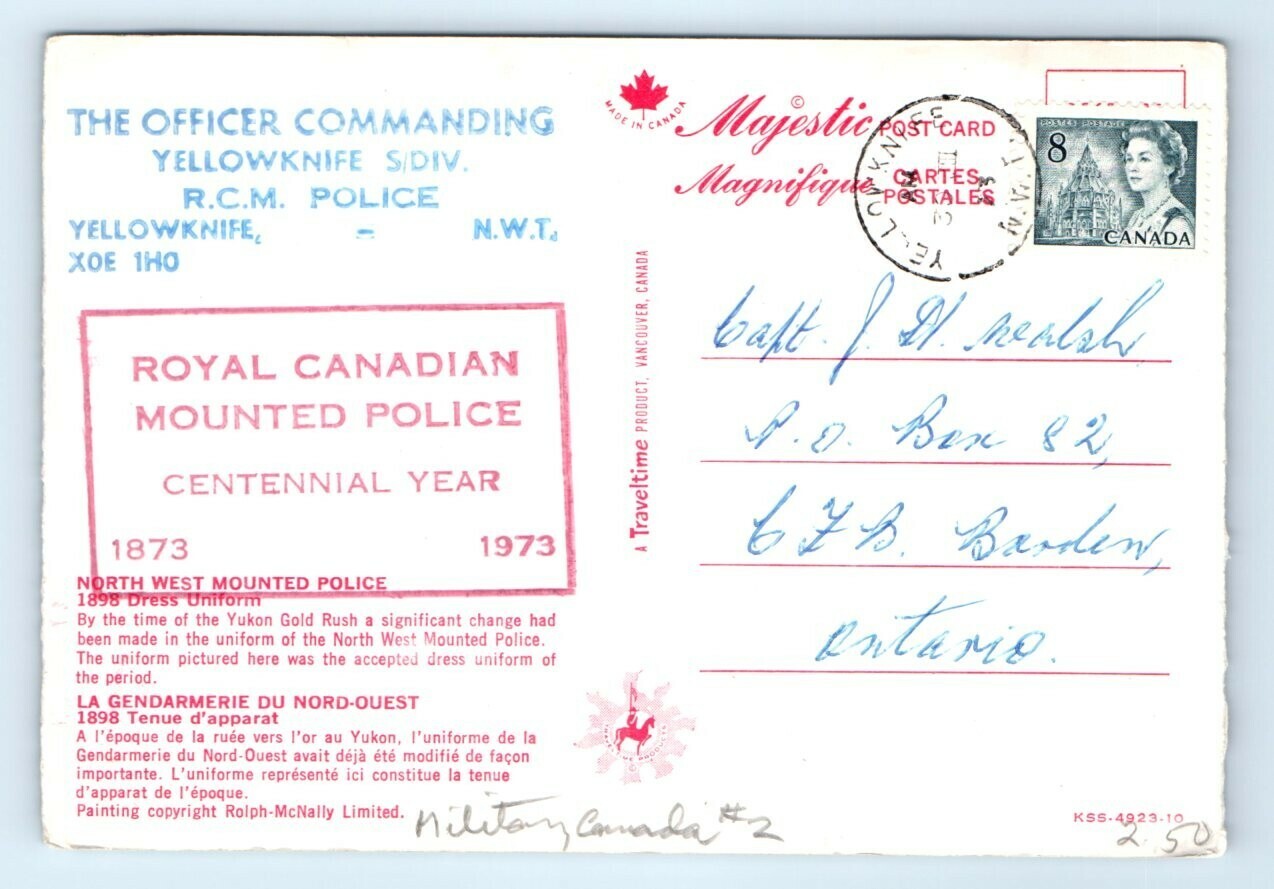 THE OFFICER COMMANDING
YELLOWKNIFE S/DIV.
R.C.M. POLICE
YELLOWKNIFE, - N.W.T.
X0E 1H0
ROYAL CANADIAN
MOUNTED POLICE
CENTENNIAL YEAR
1873 1973
NORTH WEST MOUNTED POLICE
1898 Dress Uniform
By the time of the Yukon Gold Rush a significant change had
been made in the uniform of the North West Mounted Police.
The uniform pictured here was the accepted dress uniform of
the period.
LA GENDARMERIE DU NORD-OUEST
1898 Tenue d'apparat
A l'époque de la ruée vers l'or au Yukon, l'uniforme de la
Gendarmerie du Nord-Ouest avait déjà été modifié de façon
importante. L'uniforme représenté ici constitue la tenue
d'apparat de l'époque.
Painting copyright Rolph-McNally Limited.
Military Canada #2
MADE IN CANADA
A Traveltime PRODUCT, VANCOUVER, CANADA
Majestic © POST CARD
Magnifique CARTES
POSTALES
YELLOWKNIFE N.W.T.
AM
POSTES POSTAGE
8
CANADA
Capt. J. H. Walsh
P.O. Box 82,
CFB. Borden,
Ontario.
KSS-4923-10
2.50